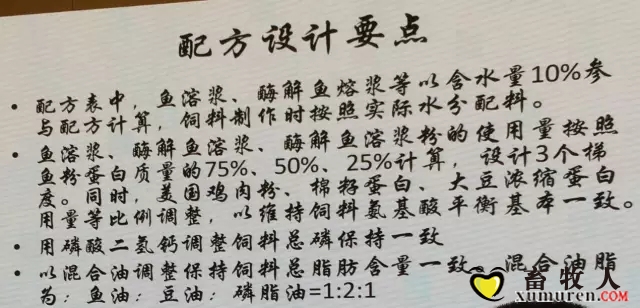 配方设计要点
• 配方表中，鱼溶浆、酶解鱼熔浆等以含水量10%参
与配方计算，饲料制作时按照实际水分配料。
• 鱼溶浆、酶解鱼溶浆、鱼溶浆粉的使用量按照
鱼粉蛋白质量的75%、50%、25%计算，设计3个梯
度。同时，美国鸡肉粉、棉籽蛋白、大豆浓缩蛋白
用量等比例调整，以维持饲料氨基酸平衡基本一致。
• 用磷酸二氢钙调整饲料总磷保持一致
• 以混合油调整保持饲料总脂肪含量一致。混合油脂
为：鱼油：豆油：磷脂油=1:2:1
畜牧人
xumuren.com